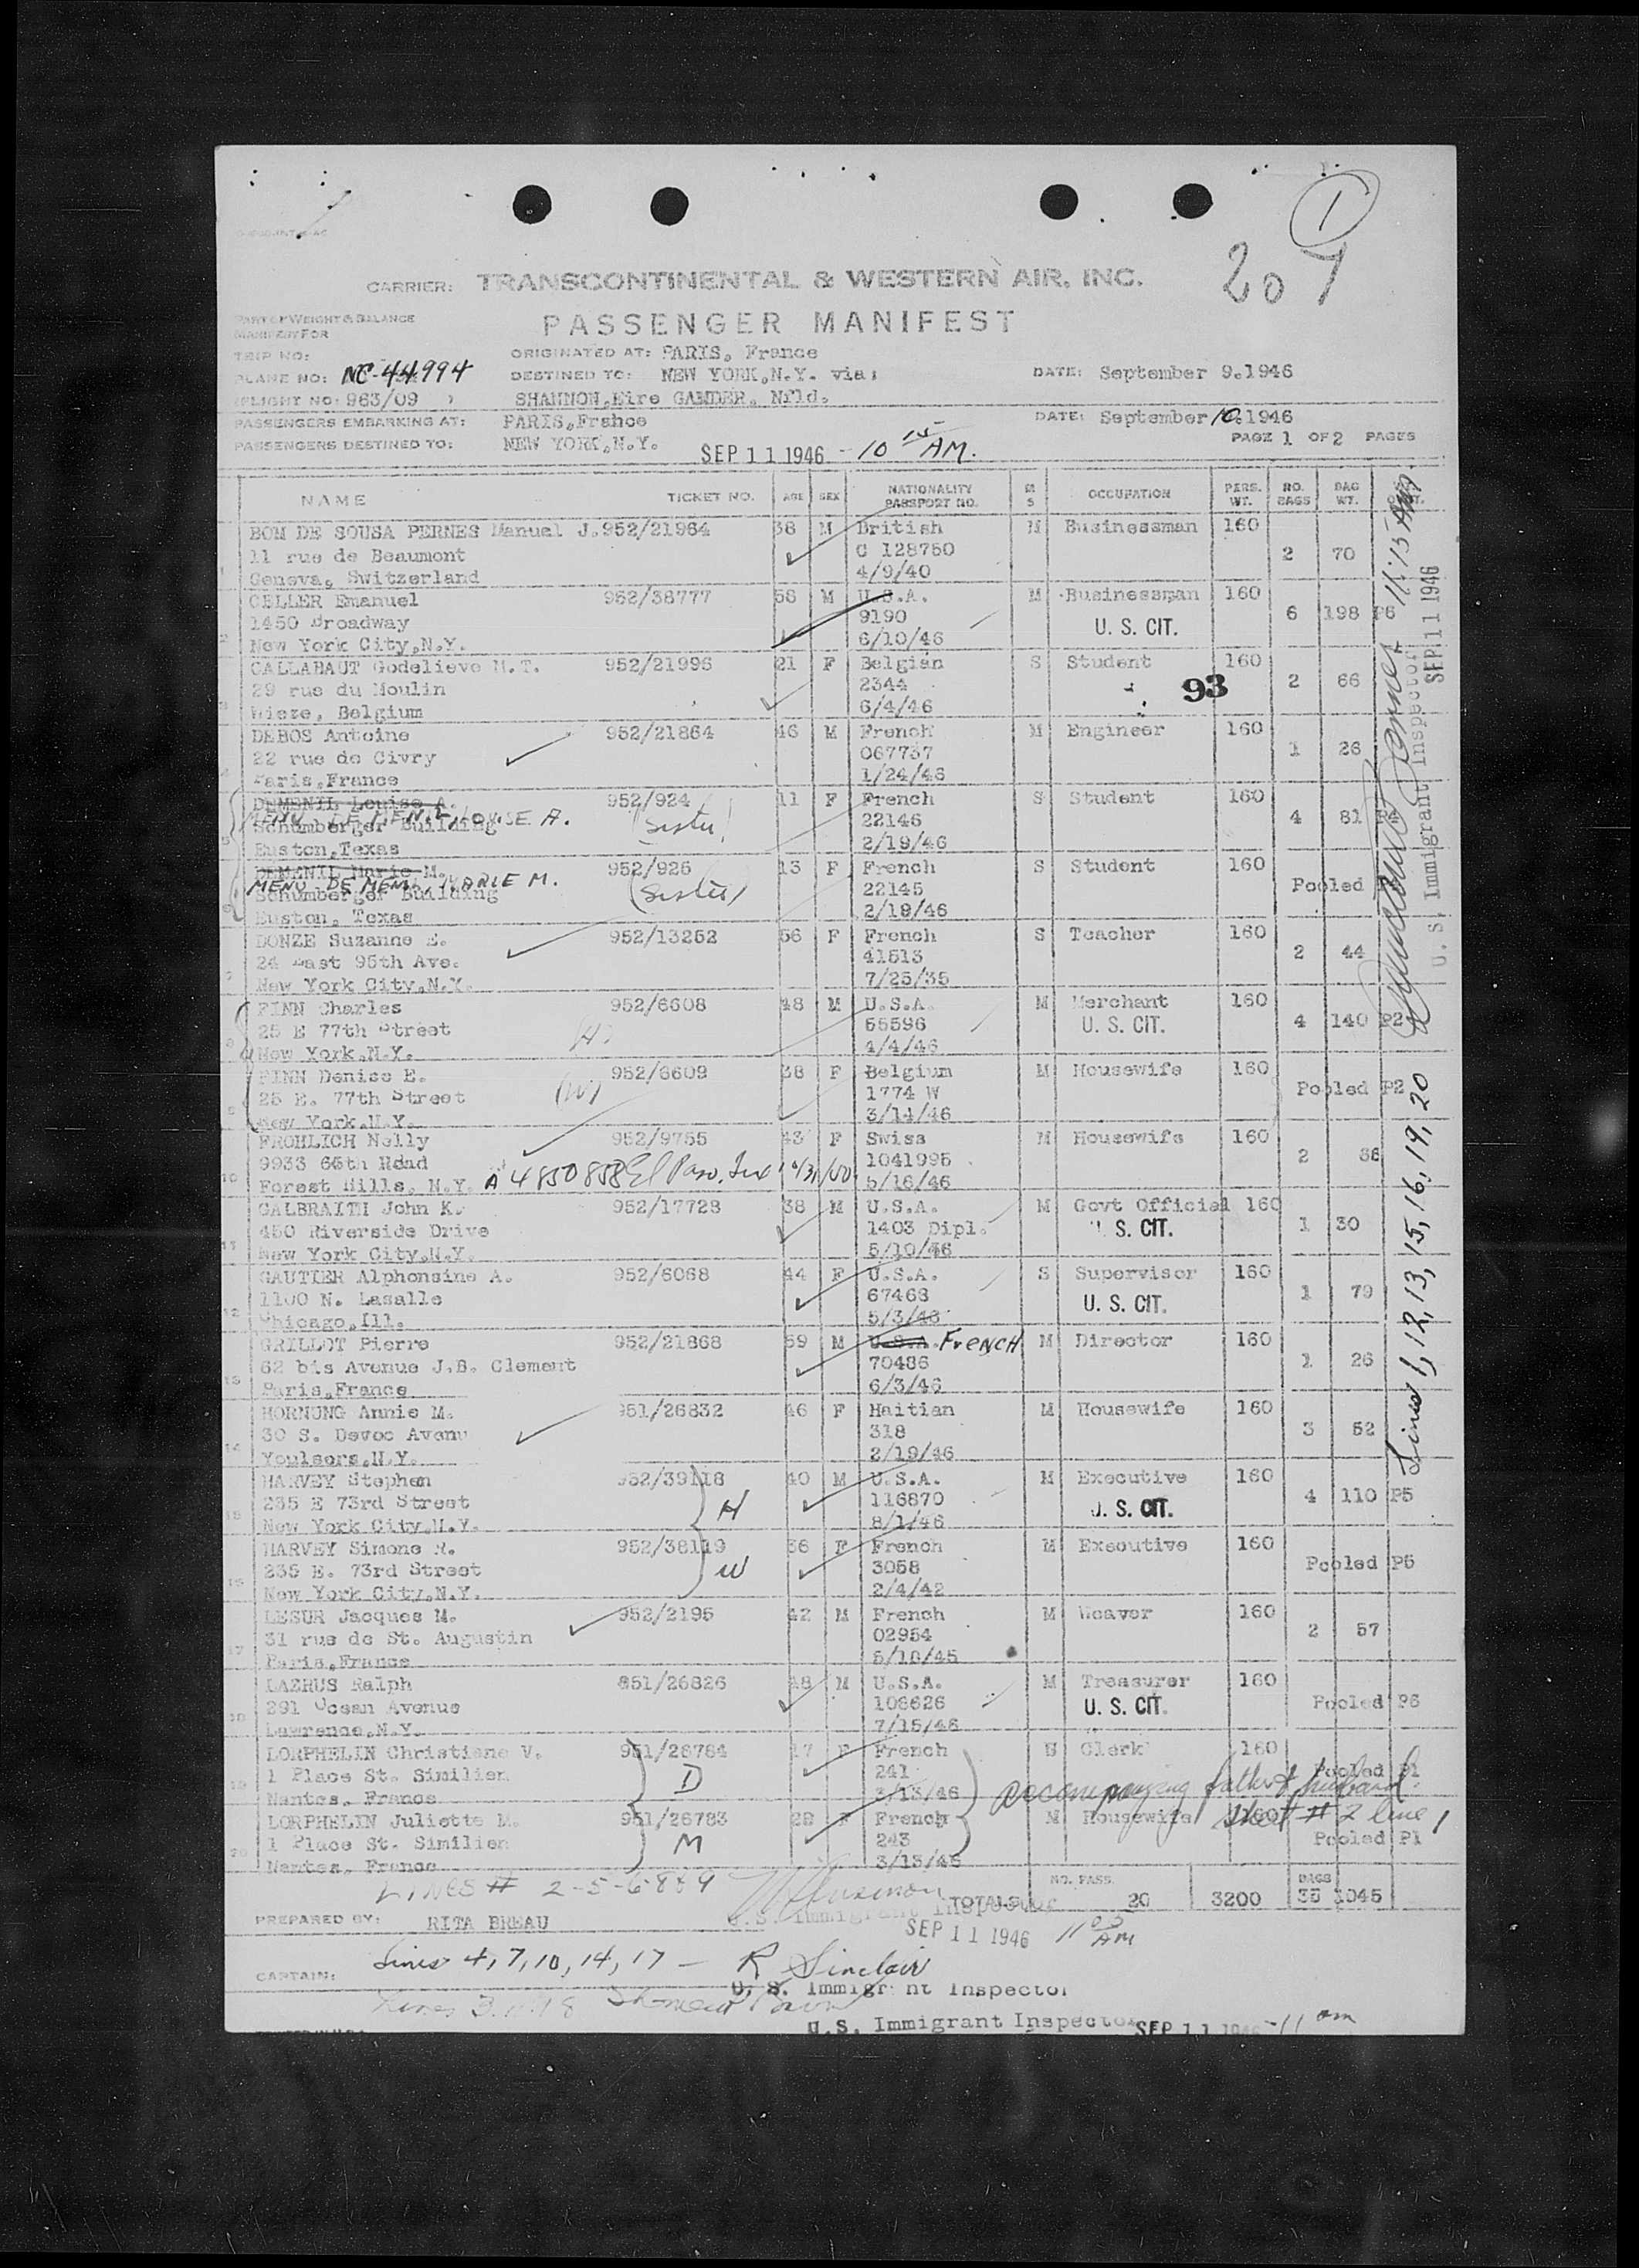 1
207
CARRIER: TRANSCONTINENTAL & WESTERN AIR, INC.
PART OF WEIGHT & BALANCE
MANIFEST FOR
PASSENGER MANIFEST
TRIP NO:
ORIGINATED AT: PARIS, France
PLANE NO: NC-44994
DESTINED TO: NEW YORK,N.Y. via:
DATE: September 9,1946
FLIGHT NO: 963/09
SHANNON,Eire GANDER, Nfld.
PASSENGERS EMBARKING AT: PARIS,France
DATE: September 10,1946
PASSENGERS DESTINED TO: NEW YORK,N.Y.
PAGE 1 OF 2 PAGES
SEP 11 1946 - 10 15 AM.
NAME TICKET NO. AGE SEX NATIONALITY PASSPORT NO. M S OCCUPATION PERS. WT. NO. BAGS BAG WT.
BOM DE SOUSA PERNES Manual J. 952/21964 38 M British M Businessman 160
11 rue de Beaumont C 128750 2 70
1 Geneva, Switzerland 4/9/40
CELLER Emanuel 952/38777 58 M U.S.A. M Businessman 160
1450 Broadway 9190 U. S. CIT. 6 198 P6
2 New York City,N.Y. 6/10/46
CALLABAUT Godelieve M.T. 952/21996 21 F Belgian S Student 160
29 rue du Moulin 2344 93 2 66
3 Wieze, Belgium 6/4/46
DEBOS Antoine 952/21864 46 M French M Engineer 160
22 rue de Civry 067737 1 26
4 Paris,France 1/24/46
DEMENIL Louise A. 952/924 11 F French S Student 160
MENU DE MENIL LOUISE A. (Sister)
Schumberger Building 22146 4 81 P4
5 Huston,Texas 2/19/46
DEMENIL Marie M. 952/926 13 F French S Student 160
MENU DE MENIL MARIE M. (Sister)
Schumberger Building 22145 Pooled
6 Huston, Texas 2/19/46
DONZE Suzanne E. 952/13252 56 F French S Teacher 160
24 East 95th Ave. 41513 2 44
7 New York City,N.Y. 7/25/35
FINN Charles 952/6608 48 M U.S.A. M Merchant 160
25 E 77th Street (H) 55596 U. S. CIT. 4 140 P2
8 New York,N.Y. 4/4/46
FINN Denise E. 952/6609 38 F Belgium M Housewife 160
25 E. 77th Street (W) 1774 W Pooled P2
9 New York,N.Y. 3/14/46
FROHLICH Nelly 952/9755 43 F Swiss M Housewife 160
9933 66th Road 1041995 2 36
10 Forest Hills, N.Y. A 4850858 El Paso, Tex 10/31/50 5/16/46
GALBRAITH John K. 952/17728 38 M U.S.A. M Govt Official 160
450 Riverside Drive 1403 Dipl. U. S. CIT. 1 30
11 New York City,N.Y. 5/10/46
GAUTIER Alphonsine A. 952/6068 44 F U.S.A. S Supervisor 160
1100 N. Lasalle 67463 U. S. CIT. 1 79
12 Chicago,Ill. 5/3/46
GRILLOT Pierre 952/21868 59 M U.S.A. FRENCH M Director 160
62 bis Avenue J.B. Clement 70486 1 26
13 Paris,France 6/3/46
HORNUNG Annie M. 951/26832 46 F Haitian M Housewife 160
30 S. Devoe Avenu 318 3 52
14 Youlsors,N.Y. 2/19/46
HARVEY Stephen 952/39118 40 M U.S.A. M Executive 160
235 E 73rd Street H 116870 U. S. CIT. 4 110 P5
15 New York City,N.Y. 8/1/46
HARVEY Simone R. 952/38119 36 F French M Executive 160
235 E. 73rd Street W 3058 Pooled P5
16 New York City,N.Y. 2/4/42
LESUR Jacques M. 952/2195 42 M French M Weaver 160
31 rue de St. Augustin 02954 2 57
17 Paris,France 5/18/45
LAZRUS Ralph 951/26826 48 M U.S.A. M Treasurer 160
291 Ocean Avenue 106626 U. S. CIT. Pooled P6
18 Lawrence,N.Y. 7/15/46
LORPHELIN Christiane V. 951/26784 17 F French S Clerk 160
1 Place St. Similien D 241 Pooled P1
19 Nantes, France 3/13/46 accompanying father & husband
LORPHELIN Juliette M. 951/26783 F French M Housewife 160 sheet # 2 line 1
1 Place St. Similien M 243 Pooled P1
20 Nantes, France 3/13/46
LINES # 2-5-6-8&9
U.S. Immigrant Inspector
TOTALS NO. PASS. 20 3200 BAGS 35 1045
PREPARED BY: RITA BREAU
SEP 11 1946 11 05 AM
CAPTAIN: Lines 4, 7, 10, 14, 17 - R Sinclair
U. S. Immigrant Inspector
Lines 3, 11, 18
U.S. Immigrant Inspector SEP 11 1946 - 11 am
Lines 1, 12, 13, 15, 16, 19, 20
U. S. Immigrant Inspector
SEP 11 1946
11:15 AM